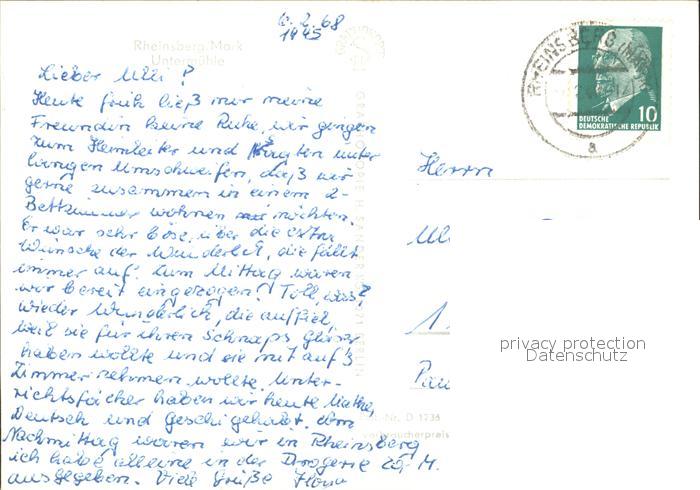 6.2.68
1945
Rheinsberg/Mark
Untermühle
Lieber Ulli!
Heute früh ließ mir meine
Freundin keine Ruhe, wir gingen
zum Heimleiter und sagten unter
langen Umschweifen, daß wir
gerne zusammen in einem 2-
Bettzimmer wohnen möchten.
Er war sehr böse, über die extra
Wünsche der Wunderlich, die fällt
immer auf! Zum Mittag waren
wir bereit eingezogen! Toll, was?
wieder Wunderlich, die auffiel,
weil sie für ihren Schnaps Gläser
haben wollte und sie mit auf's
Zimmer nehmen wollte. Unter-
richtsfächer haben wir heute Mathe,
Deutsch und Geschi gehabt. Am
Nachmittag waren wir in Rheinsberg
ich habe alleine in der Drogerie 20,- M.
ausgegeben. Viele Grüße
RHEINSBERG (MARK)
a
10
DEUTSCHE
DEMOKRATISCHE REPUBLIK
Herrn
Ul
1
Pan
privacy protection
Datenschutz
-Nr. D 1735
verbraucherpreis